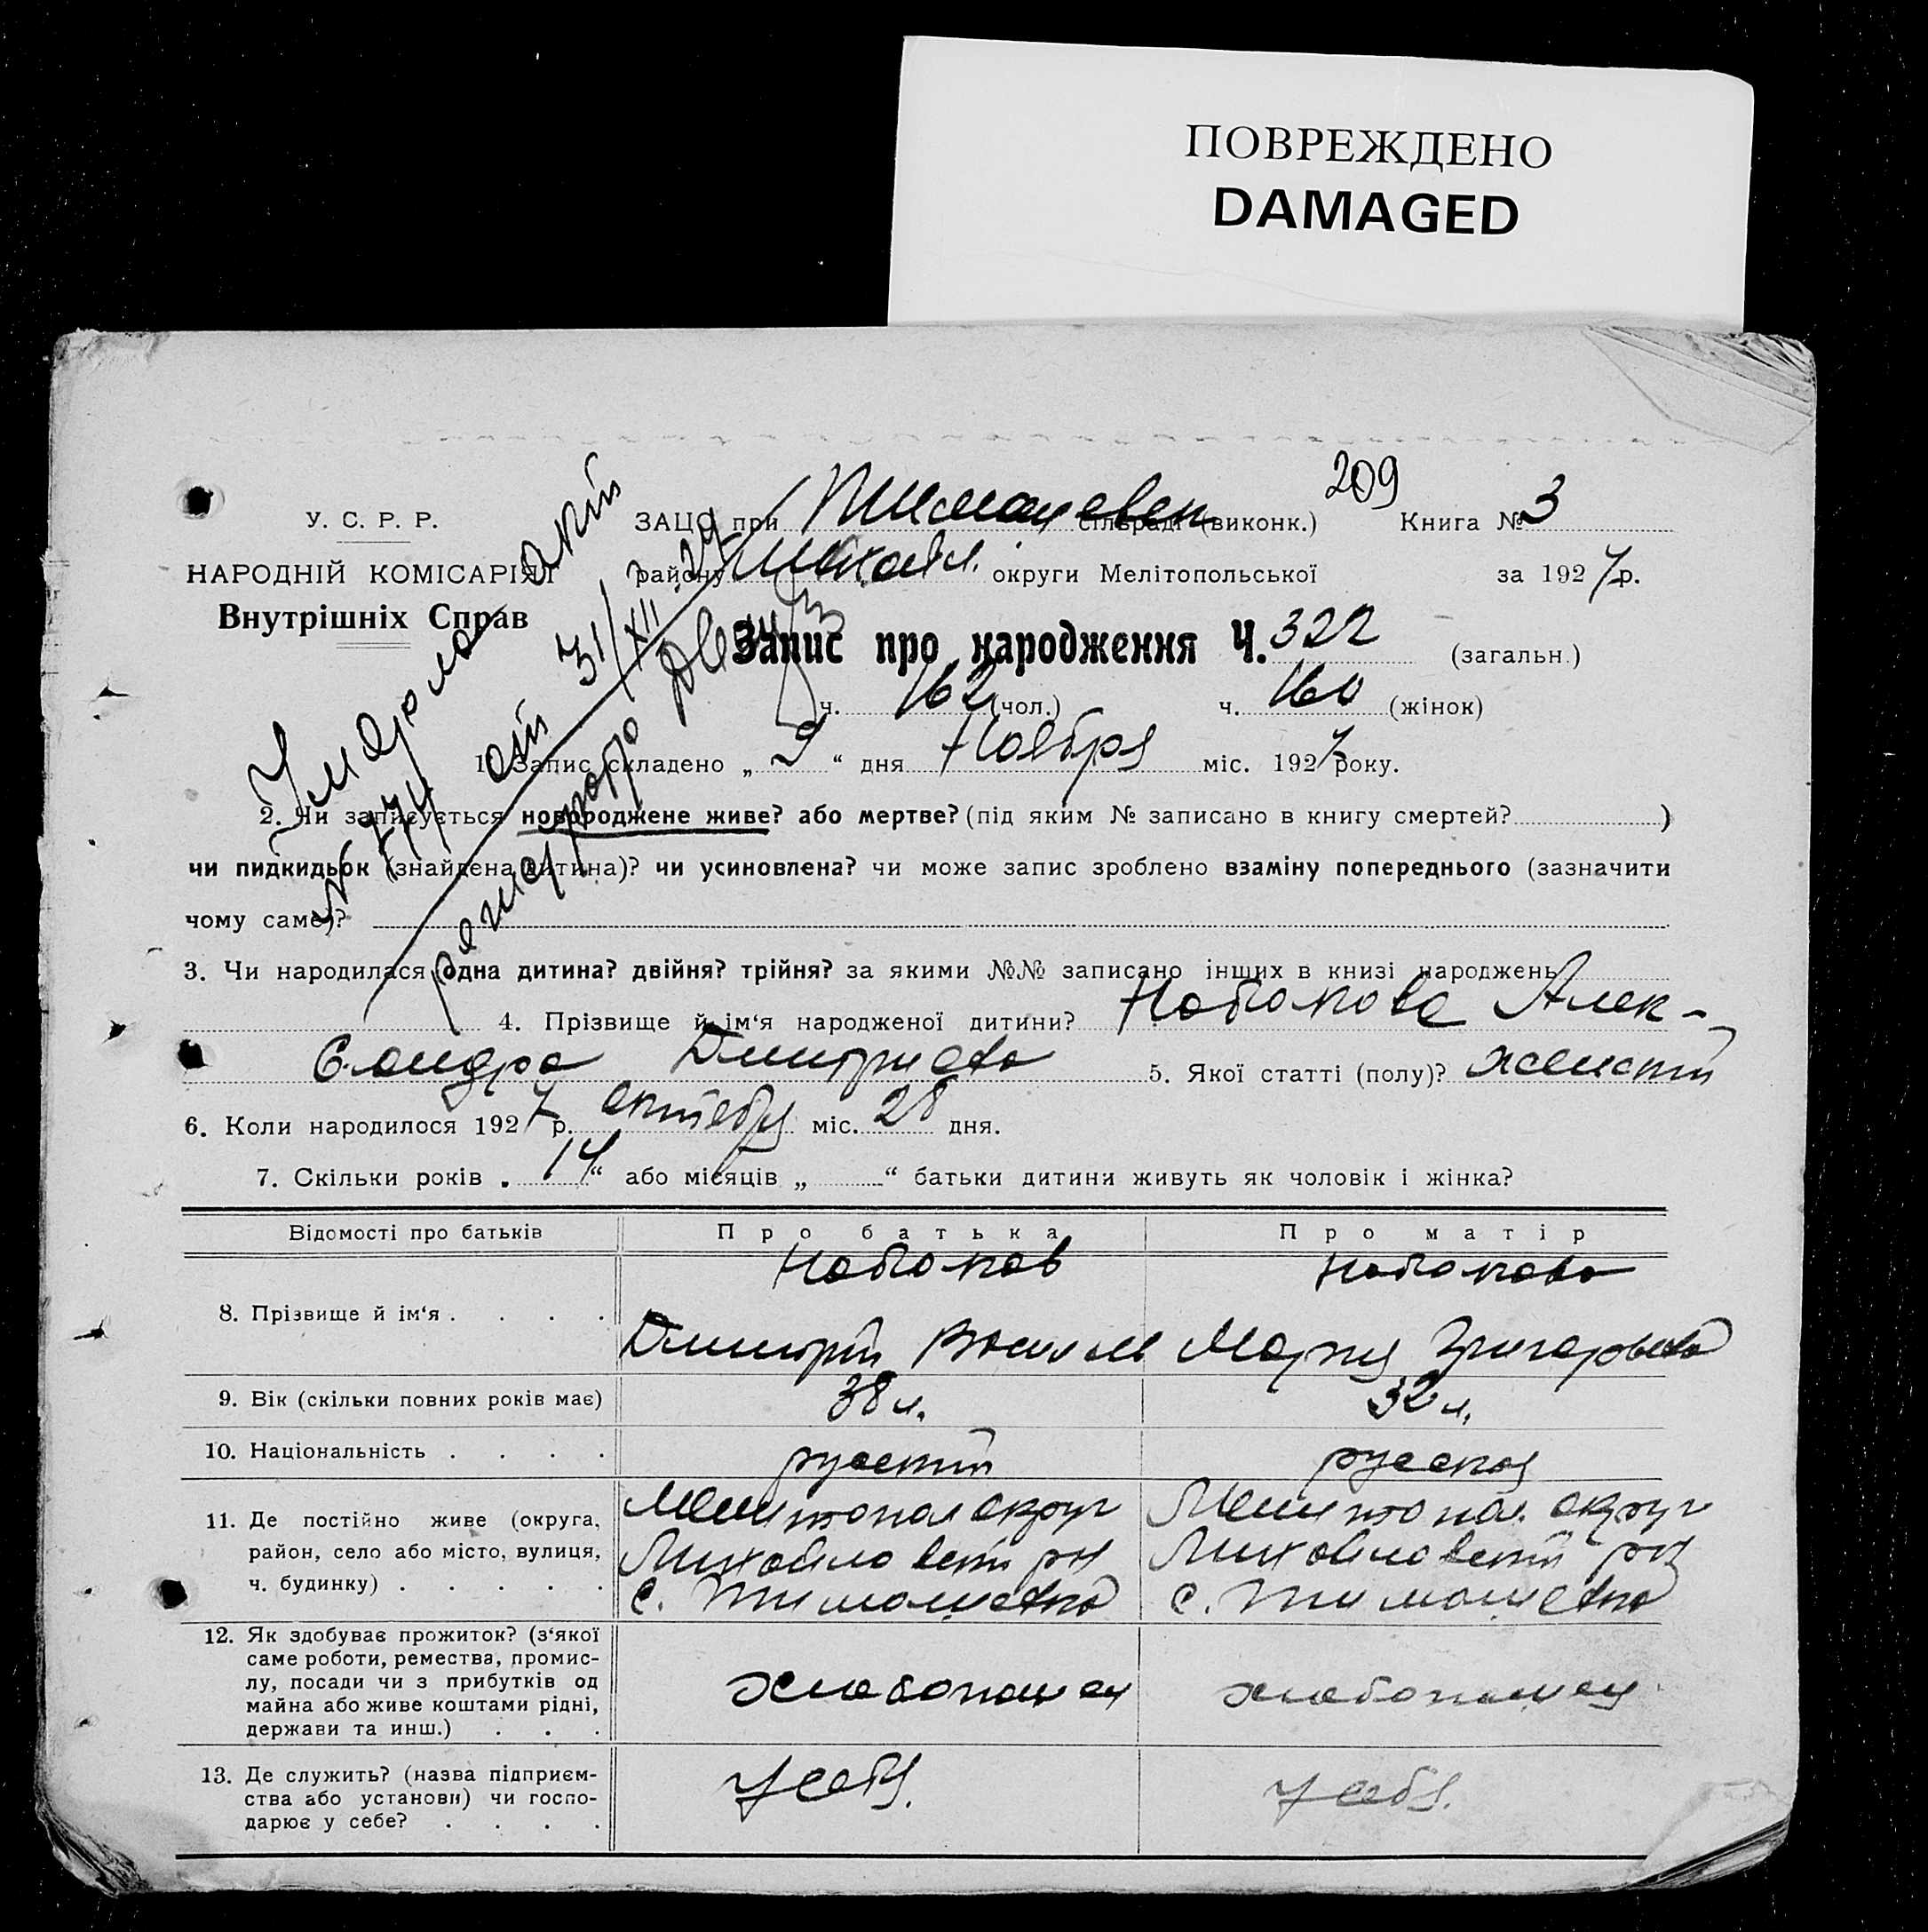 ПОВРЕЖДЕНО
DAMAGED
209
У. С. Р. Р.
ЗАЦС при Тимашевск сільраді (виконк.) Книга № 3
НАРОДНІЙ КОМІСАРІЯТ
району Михайл. округи Мелітопольської за 1927 р.
Внутрішніх Справ
Запис про народження Ч. 322 (загальн.)
ч. 162 (чол.) ч. 160 (жінок)
№ 774 от 31/XII
1. Запис складено „ 9 “ дня Ноября міс. 1927 року.
2. Чи записується новороджене живе? або мертве? (під яким № записано в книгу смертей? )
чи пидкидьок (знайдена дитина)? чи усиновлена? чи може запис зроблено взаміну попереднього (зазначити
чому саме)?
3. Чи народилася одна дитина? двійня? трійня? за якими №№ записано інших в книзі народжень
4. Прізвище й ім‘я народженої дитини? Набокова Алек-
сандра Дмитриевна 5. Якої статті (полу)? женский
6. Коли народилося 1927 р. октября міс. 28 дня.
7. Скільки років „ 14 “ або місяців „ “ батьки дитини живуть як чоловік і жінка?
Відомості про батьків Про батька Про матір
Набоков Набокова
8. Прізвище й ім‘я . . . .
Дмитрий Василев Мария Григоровна
9. Вік (скільки повних років має) 38 л. 32 л.
10. Національність . . . . русский русская
11. Де постійно живе (округа, район, село або місто, вулиця, ч. будинку) . . . . .
Мелитопол округ Мелитопол. округ
Михайловский рн Михайловский рн
с. Тимашевка с. Тимашевка
12. Як здобуває прожиток? (з‘якої
саме роботи, ремества, промис-
лу, посади чи з прибутків од
майна або живе коштами рідні,
держави та инш.) . . .
хлебопашец хлебопашец
13. Де служить? (назва підприєм-
ства або установи) чи госпо-
дарює у себе? . . . .
у себя. у себя.